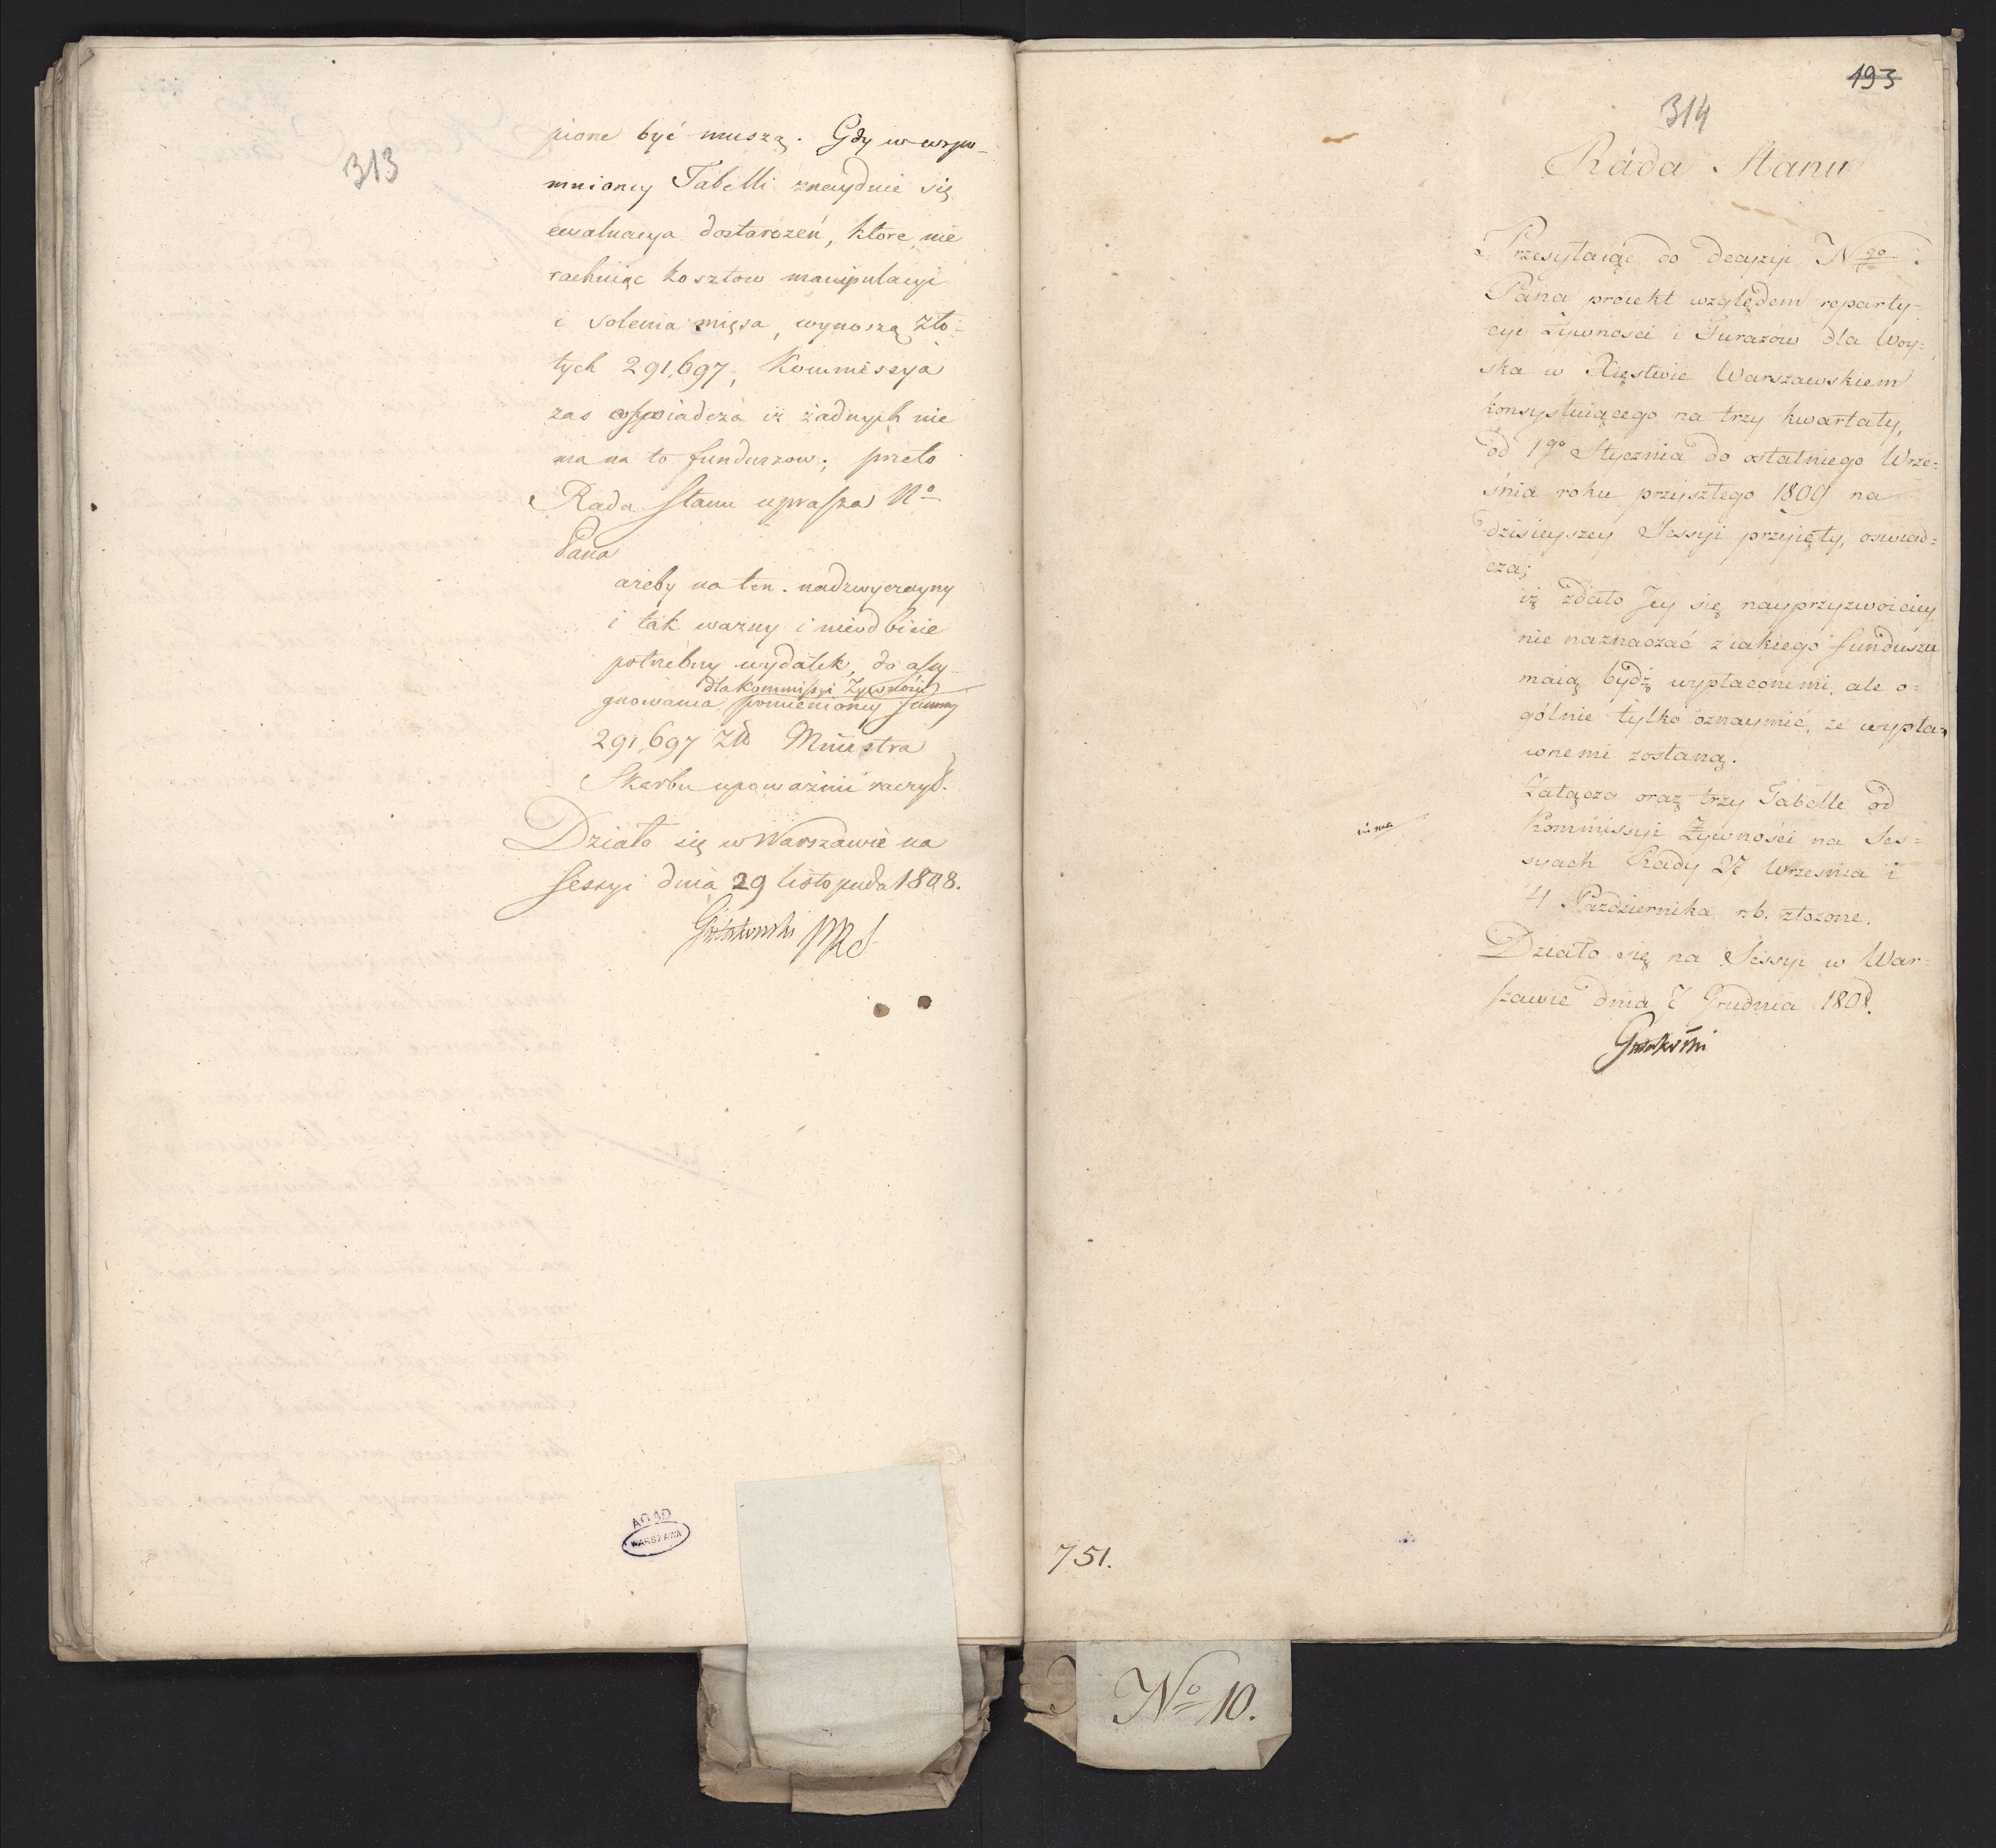 313
pione być muszą. Gdy w wspo-
mnioney Tabelli znayduie się
ewaluacya dostarczeń, ktore nie
rachuiąc kosztow manipulacyi
i solenia mięsa, wynoszą zło-
tych 291,697, Kommissya
zas oświadcza iż żadnych nie
ma na to funduszow; przeto
Rada Stanu uprasza No
Pana
ażeby na ten nadzwyczayny
i tak wazny i nieodbicie
potrzebny wydatek, do assy-
dla Kommissyi Zywności
gnowania pomienioney Summy
291,697 Zł Ministra
Skarbu upoważnić raczył.
Działo się w Warszawie na
Sessyi dnia 29 listopada 1808.
AGAD
WARSZAWA
193
314
Ráda Stanu
Przesyłaiąc do decyzyi Ngo
Pána proiekt względem reparty-
cyi Żywności i Furazów dla Woy=
ska w Xięstwie Warszawskiem
konsystuiącego na trzy kwartały,
od 1go Stycznia do ostatniego Wrze=
śnia roku przyszłego 1809 na
dzisieyszey Sessyi przyięty, oswiad=
cza;
iż zdało Jey się nayprzyzwoiciey
nie naznaczać z iakiego funduszu
maią bydź wypłaconemi, ale o=
gólnie tylko oznaymić, ze wypła=
conemi zostaną.
Załącza oraz trzy Tabelle od
Kommissyi Żywności na Ses=
syach Rady 27 Wrzesnia i
4 Pazdziernika r.b. złozone.
Działo się na Sessyi w War=
szawie dnia Grudnia 1808.
751.
No 10.